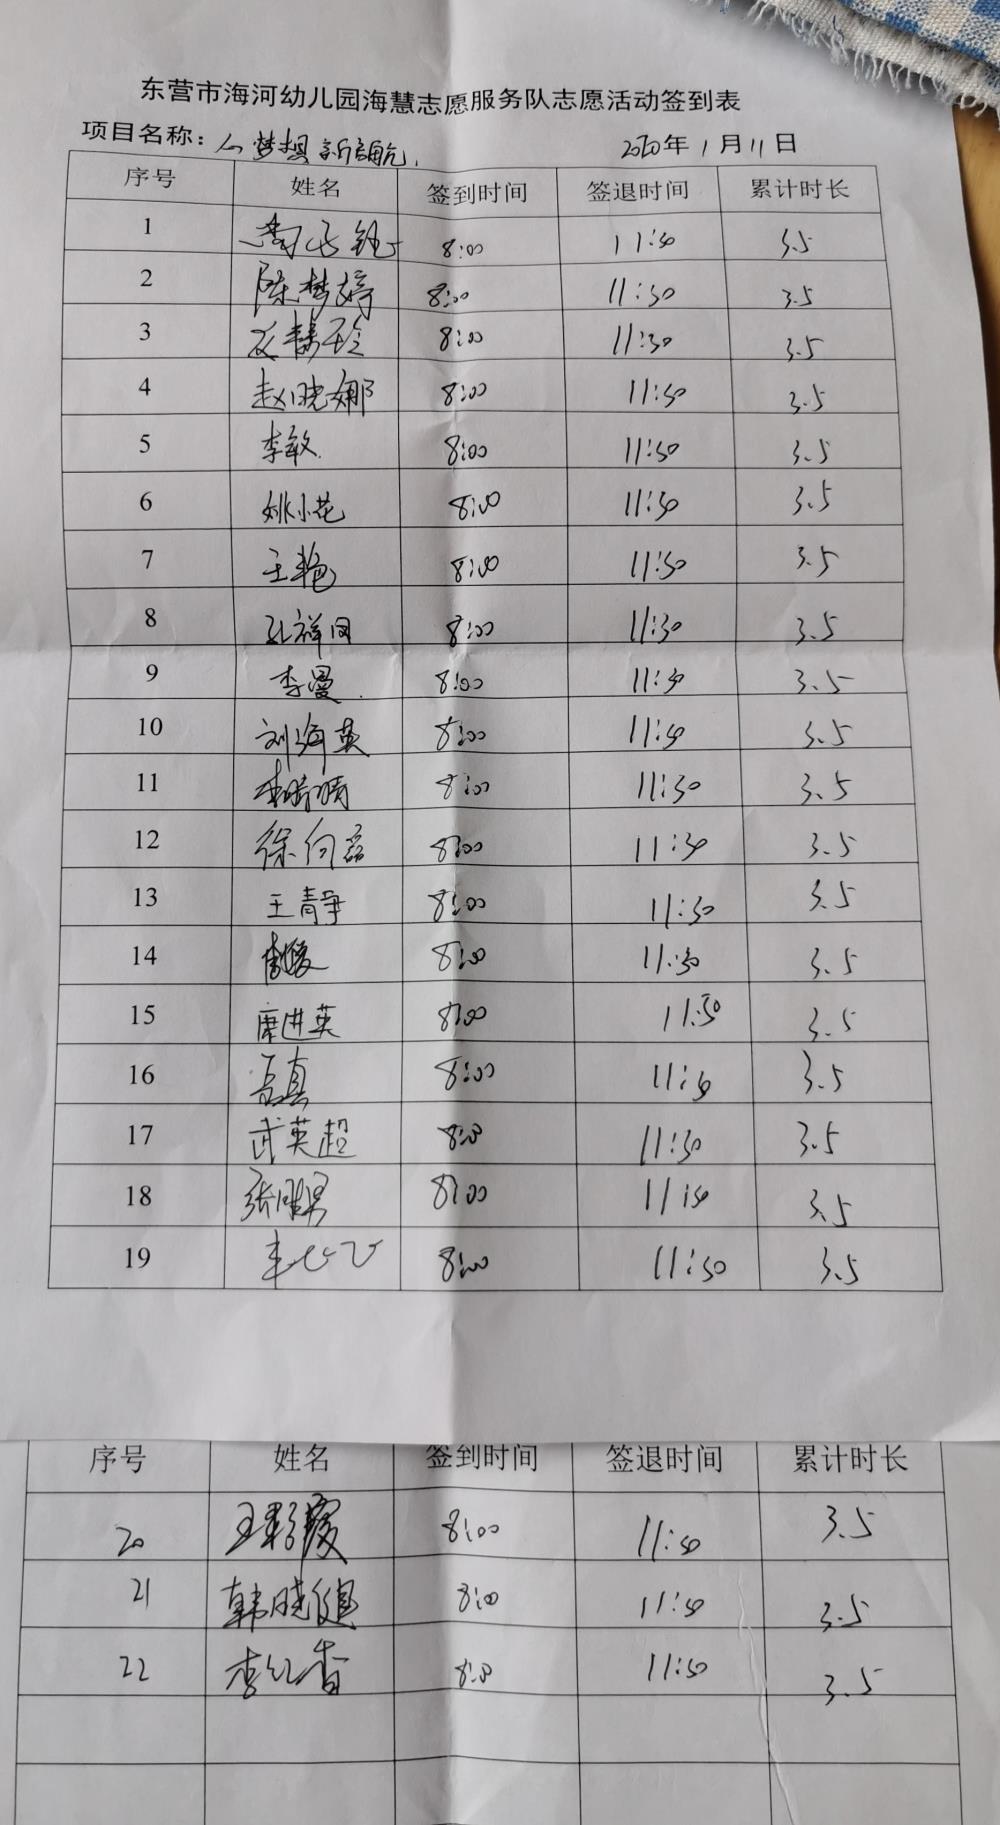 东营市海河幼儿园海慧志愿服务队志愿活动签到表
项目名称： 梦想新航 2020年1月11日
序号 姓名 签到时间 签退时间 累计时长
1 8:00 11:30 3.5
2 陈梦婷 8:00 11:30 3.5
3 8:00 11:30 3.5
4 赵晓娜 8:00 11:30 3.5
5 李敏 8:00 11:30 3.5
6 姚小花 8:00 11:30 3.5
7 王艳 8:00 11:30 3.5
8 孔祥凤 8:00 11:30 3.5
9 李曼 8:00 11:30 3.5
10 刘海英 8:00 11:30 3.5
11 李晴晴 8:00 11:30 3.5
12 徐向磊 8:00 11:30 3.5
13 王静 8:00 11:30 3.5
14 8:00 11:30 3.5
15 康进英 8:00 11:30 3.5
16 8:00 11:30 3.5
17 武英超 8:00 11:30 3.5
18 8:00 11:30 3.5
19 8:00 11:30 3.5
序号 姓名 签到时间 签退时间 累计时长
20 王彩霞 8:00 11:30 3.5
21 韩晓 8:00 11:30 3.5
22 李红香 8:00 11:30 3.5